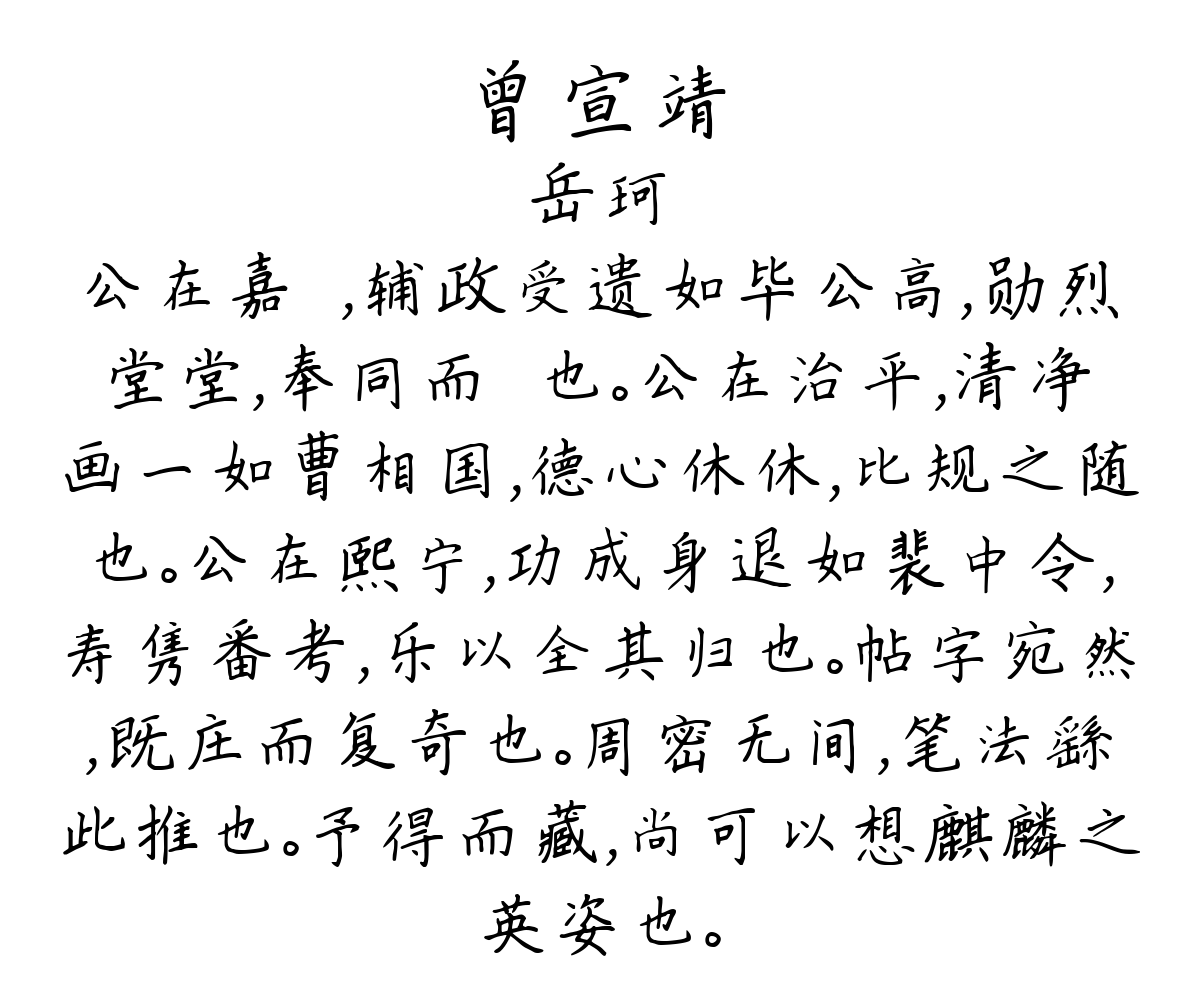 曾宣靖
岳珂
公在嘉 ,辅政受遗如毕公高,勋烈
堂堂,奉同而 也。公在治平,清净
画一如曹相国,德心休休,比规之随
也。公在熙宁,功成身退如裴中令,
寿隽番考,乐以全其归也。帖字宛然
,既庄而复奇也。周密无间,笔法繇
此推也。予得而藏,尚可以想麒麟之
英姿也。